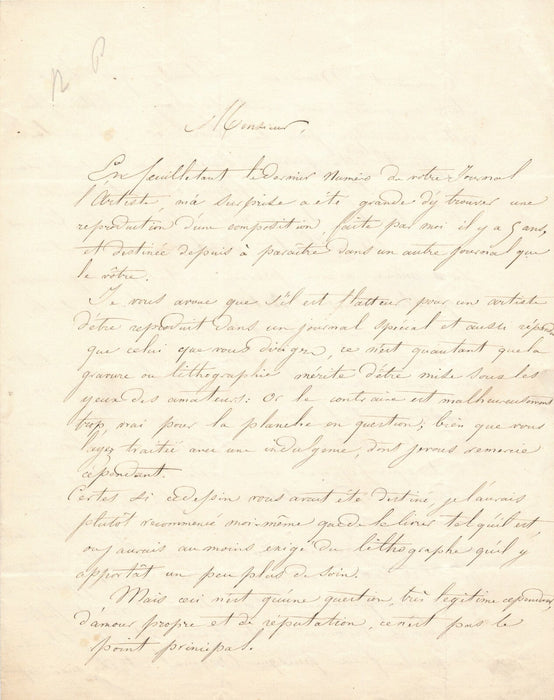 R P
Monsieur,
En feuilletant le dernier Numéro de votre Journal
l'Artiste, ma surprise a été grande d'y trouver une
reproduction d'une composition, faite par moi il y a 5 ans,
et destinée depuis à paraître dans un autre journal que
le vôtre.
Je vous avoue que s'il est flatteur pour un artiste
d'être reproduit dans un journal spécial et aussi répandu
que celui que vous dirigez, ce n'est qu'autant que la
gravure ou lithographie mérite d'être mise sous les
yeux des amateurs: Or le contraire est malheureusement
trop vrai pour la planche en question; bien que vous
l'ayez traitée avec une indulgence, dont je vous remercie
cependant.
Certes si ce dessin vous avait été destiné, je l'aurais
plutôt recommencé moi-même que de le livrer tel qu'il est,
ou j'aurais au moins exigé du lithographe qu'il y
apportât un peu plus de soin.
Mais ceci n'est qu'une question, très légitime cependant,
d'amour propre et de réputation, ce n'est pas le
point principal.